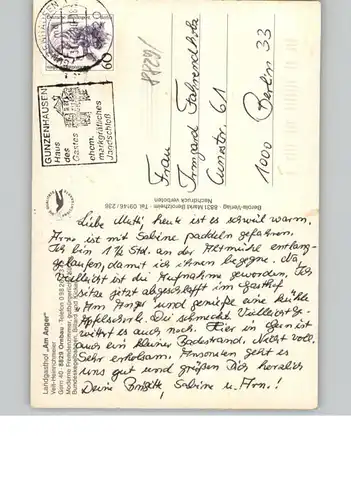 GUNZENHAUSEN
Haus
des
Gastes
ehem.
markgräfliches
Jagdschloß
60
Frau
Irmgard Fahrendholz
61
1000 Berlin 33
Berole-Verlag · 8831 Markt Berolzheim · Tel. 09146/238
Nachdruck verboten
Landgasthof „Am Anger"
Gern 40 · 8829 Ornbau
Liebe Mutti, heute ist es schwül warm.
Arno ist mit Sabine paddeln gefahren.
Ich bin 1½ Std. an der Altmühl entlang-
gelaufen, damit ich ihnen begegne. Na,
vielleicht ist die Aufnahme geworden. Ich
sitze jetzt abgeschlafft im Gasthof
"Am Anger" und genieße eine kühle
Apfelschorle. Die schmeckt. Vielleicht ge-
wittert es auch noch. Hier in Gern ist
auch ein kleiner Badestrand. Nicht voll.
Sehr erholsam. Ansonsten geht es
uns gut und grüßen Dich herzlich
Deine Brigitte, Sabine u. Arno!